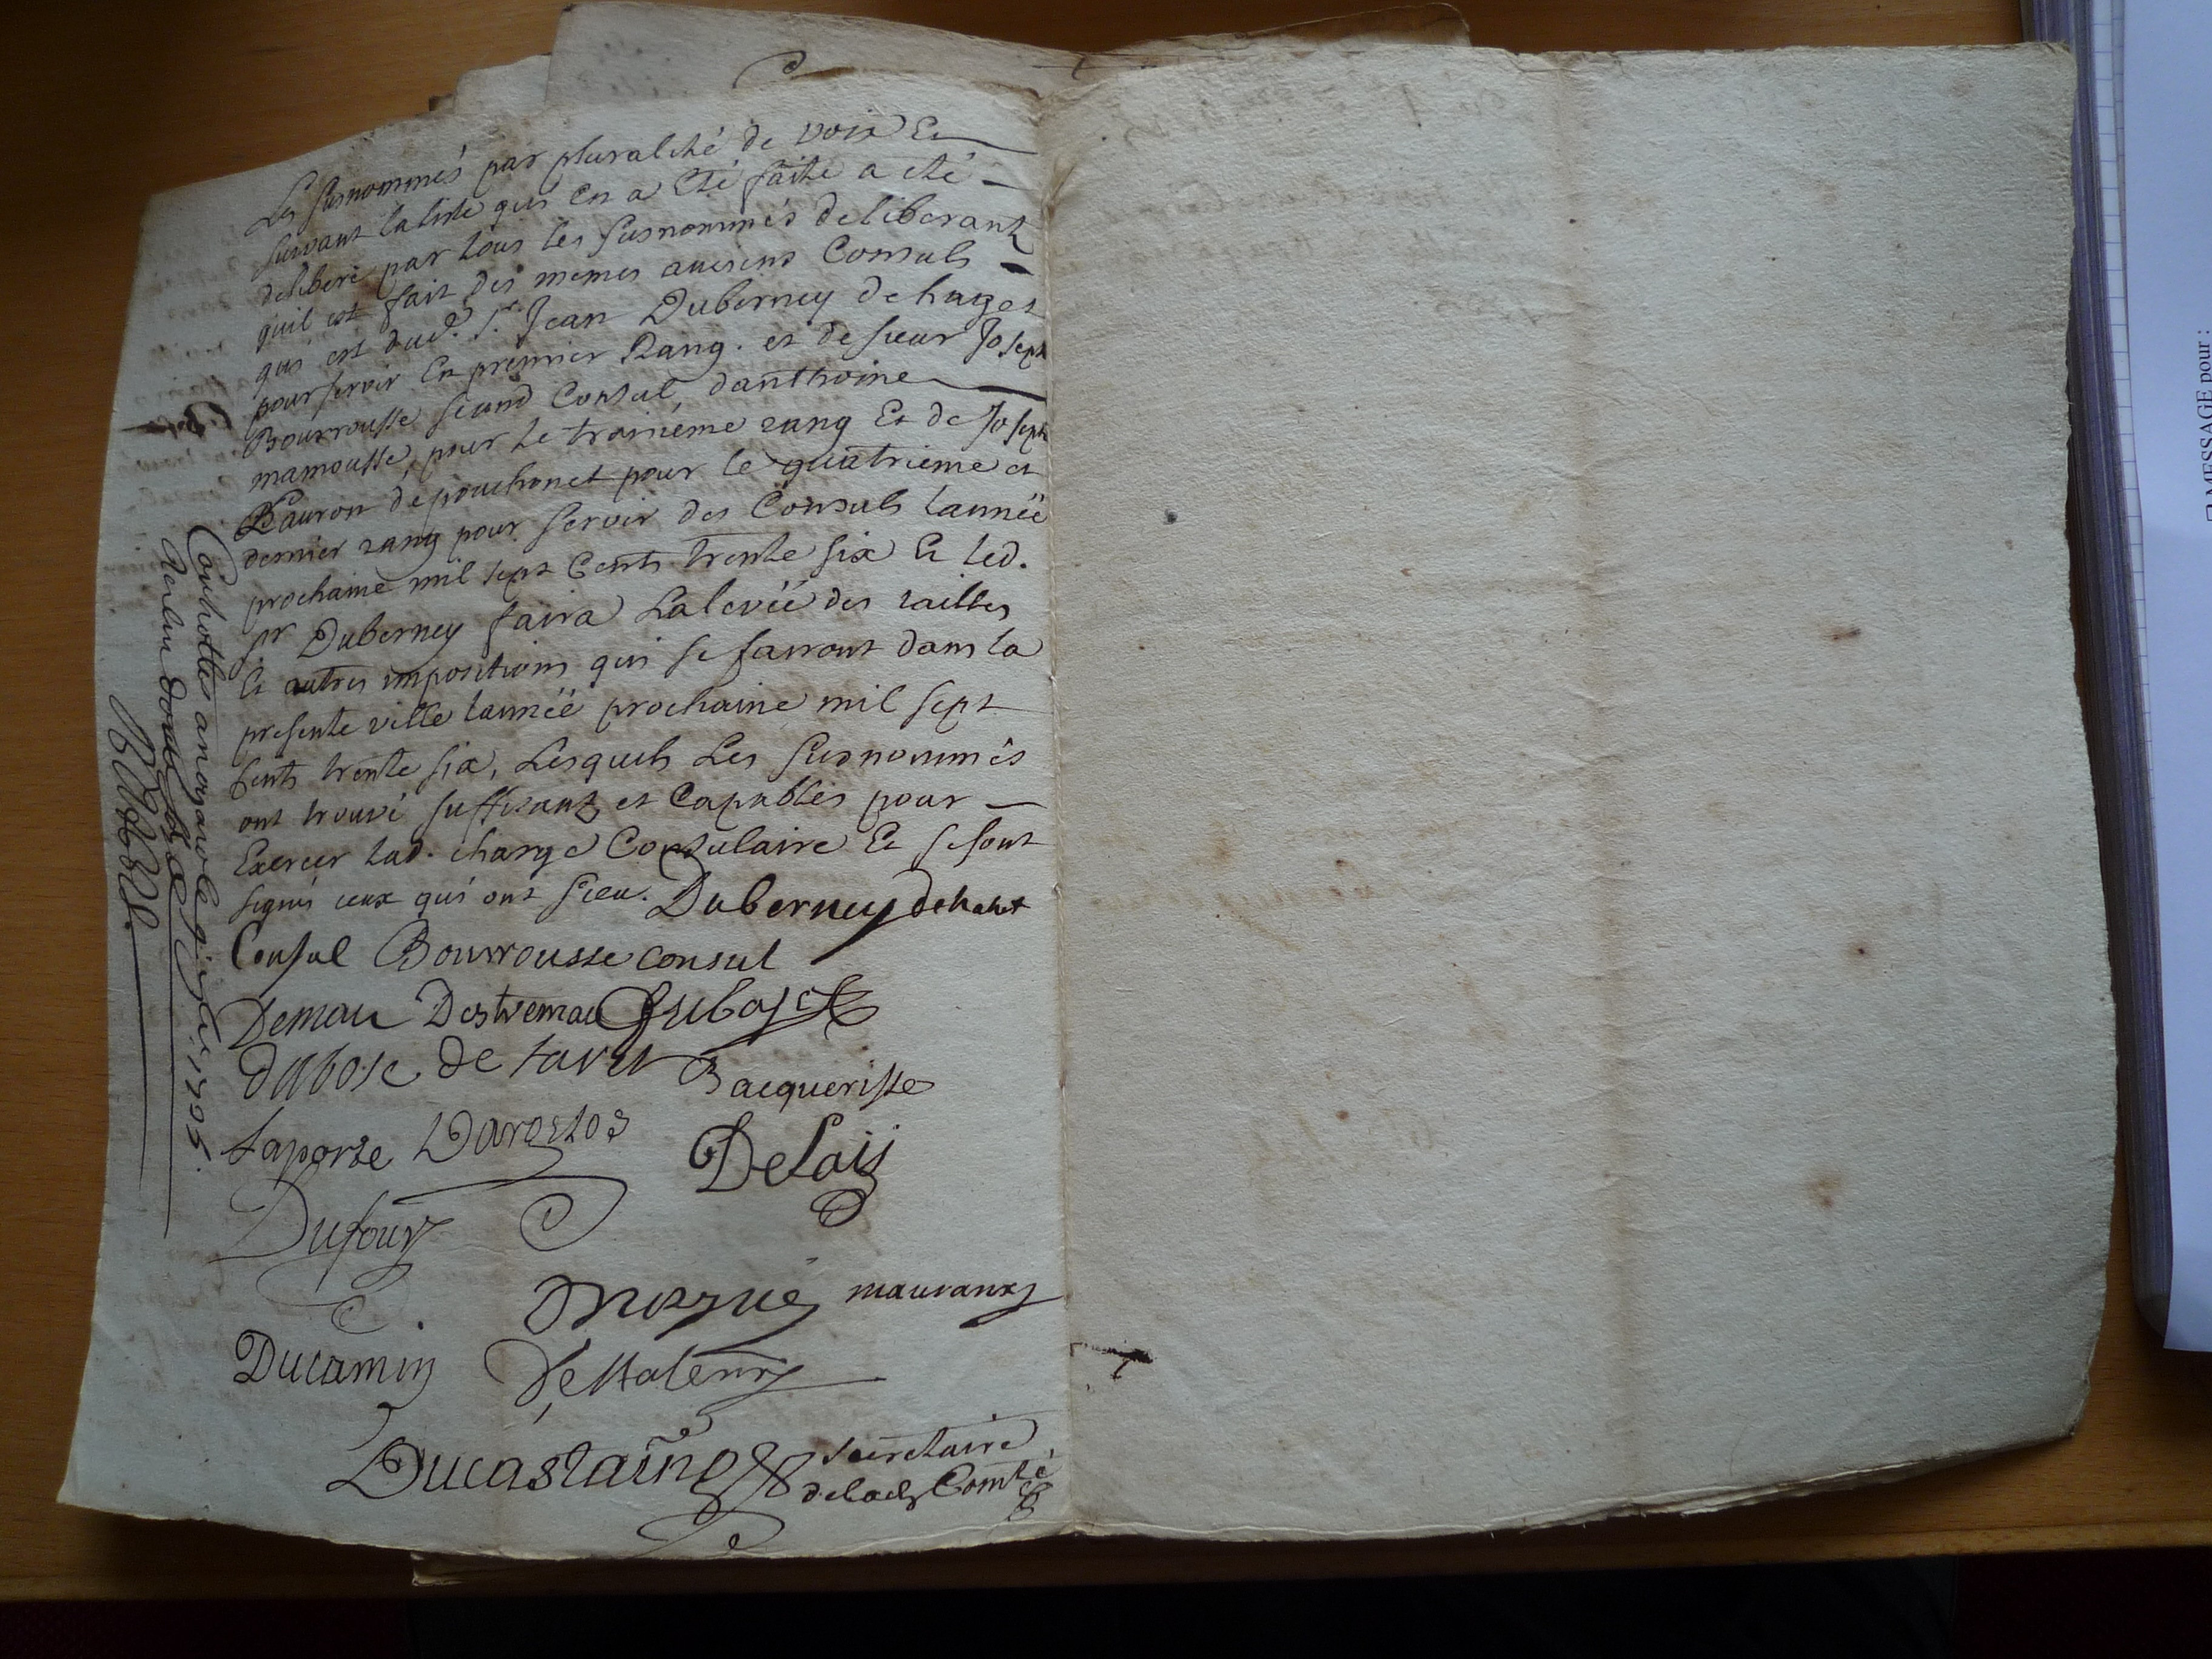 Les susnommés par pluralité de voix Et
suivant la liste qui en a Eté faite a eté
deliberé par tous les susnommés deliberant
quil est fait des memes avisins Consuls
qui est dud. Sr. Jean Duberney de hazet
pour servir En premier Rang. et de sieur Joseph
Bourrousse second Consul, danthoine
mamousse, pour le troisieme rang Et de Joseph
Bauron de pouchonet pour le quatrieme et
dernier rang pour servir des Consuls lannéë
prochaine mil sept Cents trente six Et led.
sr Duberney faira La levéë des tailles
Et autres impositions qui se fairont dans la
presente ville lannéë prochaine mil sept
Cents trente six, Lesquels Les susnommés
ont trouvé suffisantz et Capables pour
Exercer lad. charge Consulaire Et se sont
signés ceux qui ont sceu. Duberney dehazet
Consul Bourrousse consul
Deman Destremau Dubosc
dubosc de tavet Bacquerisse
Laporte Darostos
Delais
Dufour
mauranx
Ducamin
Ducastaing secretaire
de lad. Comté
Controllé a nogaro le
1735.
Reçu douze sols
MESSAGE pour :